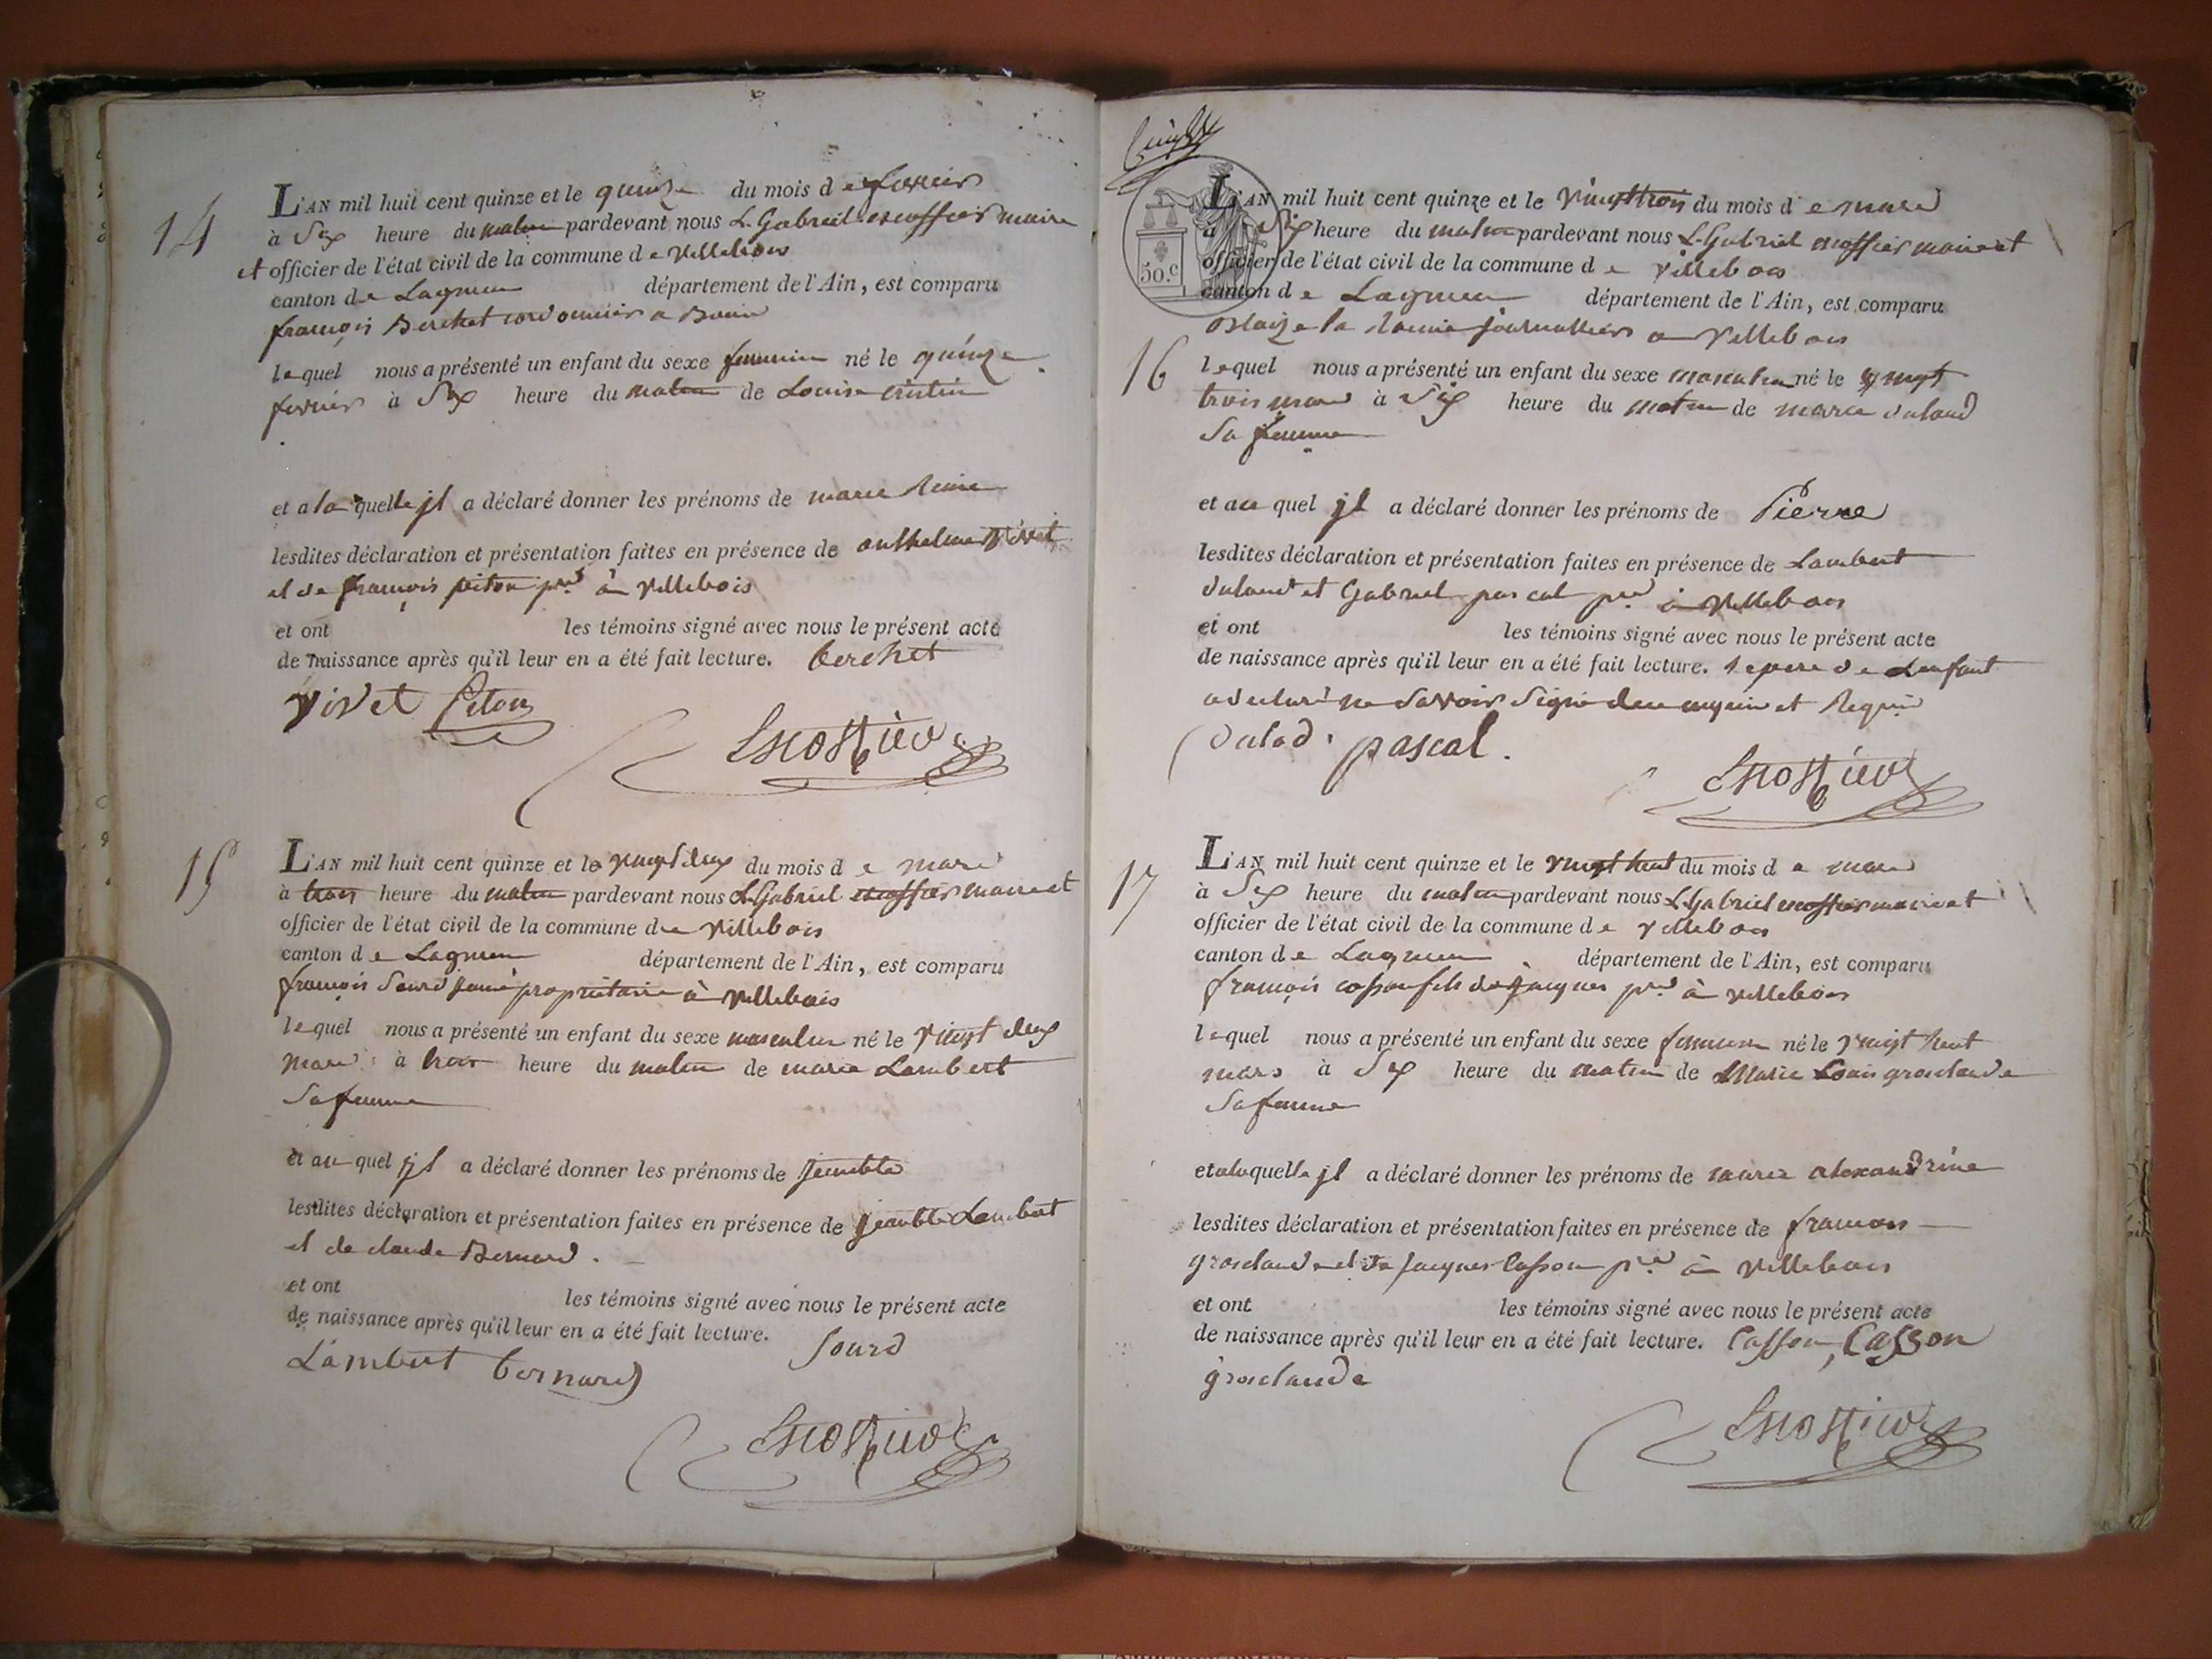 14
L'AN mil huit cent quinze et le quinze du mois de fevrier
à Six heure du matin pardevant nous L. Gabriel escoffier maire
et officier de l'état civil de la commune de villebois
canton de Lagnieu département de l'Ain, est comparu
françois Berchet cordonnier a
lequel nous a présenté un enfant du sexe feminin né le quinze
fevrier à Six heure du matin de Louise cristin
et a la quelle jl a déclaré donner les prénoms de marie Reine
lesdites déclaration et présentation faites en présence de anthelme vivet
et de françois piton pre à villebois
et ont les témoins signé avec nous le présent acte
de naissance après qu'il leur en a été fait lecture. berchet
vivet Piton
Escoffier
15
L'AN mil huit cent quinze et le vingt deux du mois de mars
à trois heure du matin pardevant nous L. Gabriel escoffier maire et
officier de l'état civil de la commune de villebois
canton de Lagnieu département de l'Ain, est comparu
françois Sourd propriétaire à villebois
lequel nous a présenté un enfant du sexe masculin né le vingt deux
mars à trois heure du matin de marie Lambert
Sa femme
et au quel jl a déclaré donner les prénoms de
lesdites déclaration et présentation faites en présence de Lambert
et de claude Bernard.
et ont les témoins signé avec nous le présent acte
de naissance après qu'il leur en a été fait lecture. Sourd
Lambert bernard
Escoffier
50.c
16
L'AN mil huit cent quinze et le vingt trois du mois de mars
à Six heure du matin pardevant nous L. Gabriel escoffier maire et
officier de l'état civil de la commune de villebois
canton de Lagnieu département de l'Ain, est comparu
journallier a villebois
lequel nous a présenté un enfant du sexe masculin né le vingt
trois mars à Six heure du matin de marie dulaud
Sa femme
et au quel jl a déclaré donner les prénoms de Pierre
lesdites déclaration et présentation faites en présence de Lambert
dulaud et Gabriel pascal pre à villebois
et ont les témoins signé avec nous le présent acte
de naissance après qu'il leur en a été fait lecture. le pere de Lenfant
a declaré ne Savoir Signé de ce enquis et Requis
dulad. pascal.
Escoffier
17
L'AN mil huit cent quinze et le vingt huit du mois de mars
à Six heure du matin pardevant nous L. Gabriel escoffier maire et
officier de l'état civil de la commune de villebois
canton de Lagnieu département de l'Ain, est comparu
françois casson fils de jacques pre à villebois
lequel nous a présenté un enfant du sexe feminin né le vingt huit
mars à Six heure du matin de Marie Louis grosclaude
Sa femme
et a laquelle jl a déclaré donner les prénoms de marie alexandrine
lesdites déclaration et présentation faites en présence de francois
grosclaude et de jacques Casson pre à villebois
et ont les témoins signé avec nous le présent acte
de naissance après qu'il leur en a été fait lecture. Casson, Casson
grosclaude
Escoffier